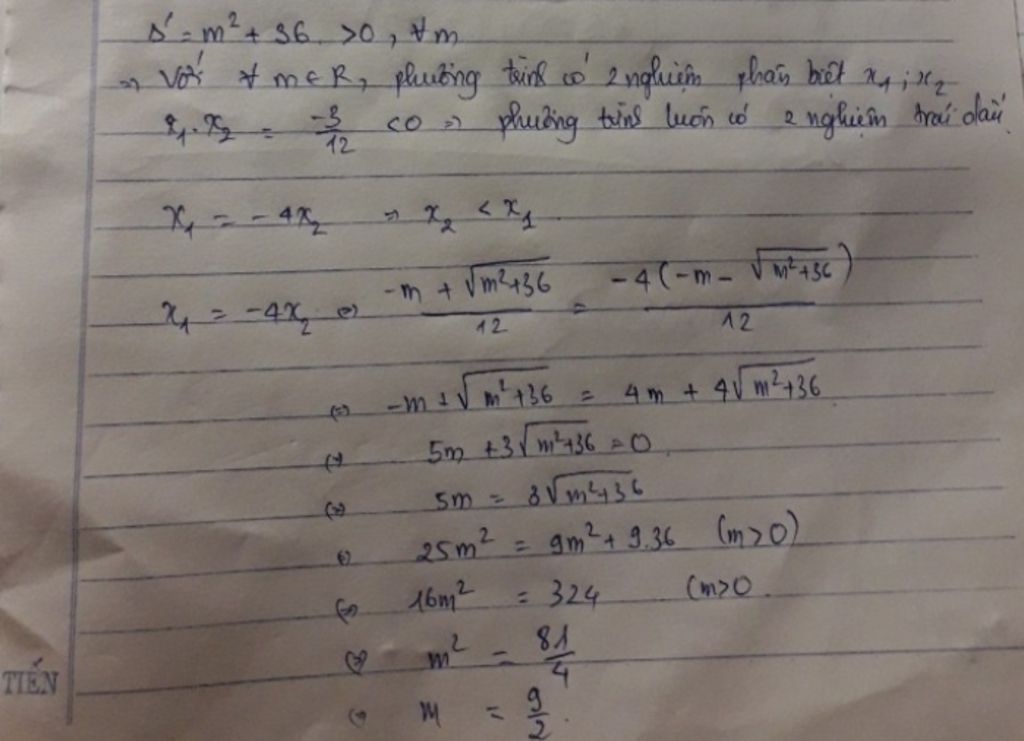 Δ' = m² + 36 > 0, ∀m
⇒ Với ∀ m ∈ R, phương trình có 2 nghiệm phân biệt x₁ ; x₂
x₁.x₂ = -3/12 < 0 ⇒ phương trình luôn có 2 nghiệm trái dấu
x₁ = -4x₂ ⇒ x₂ < x₁
x₁ = -4x₂ ⇔ (-m + √(m²+36))/12 = (-4(-m - √(m²+36)))/12
⇔ -m + √(m²+36) = 4m + 4√(m²+36)
⇔ 5m + 3√(m²+36) = 0
⇔ 5m = 3√(m²+36)
⇔ 25m² = 9m² + 9.36 (m>0)
⇔ 16m² = 324 (m>0
⇔ m² = 81/4
⇔ m = 9/2.
TIẾN